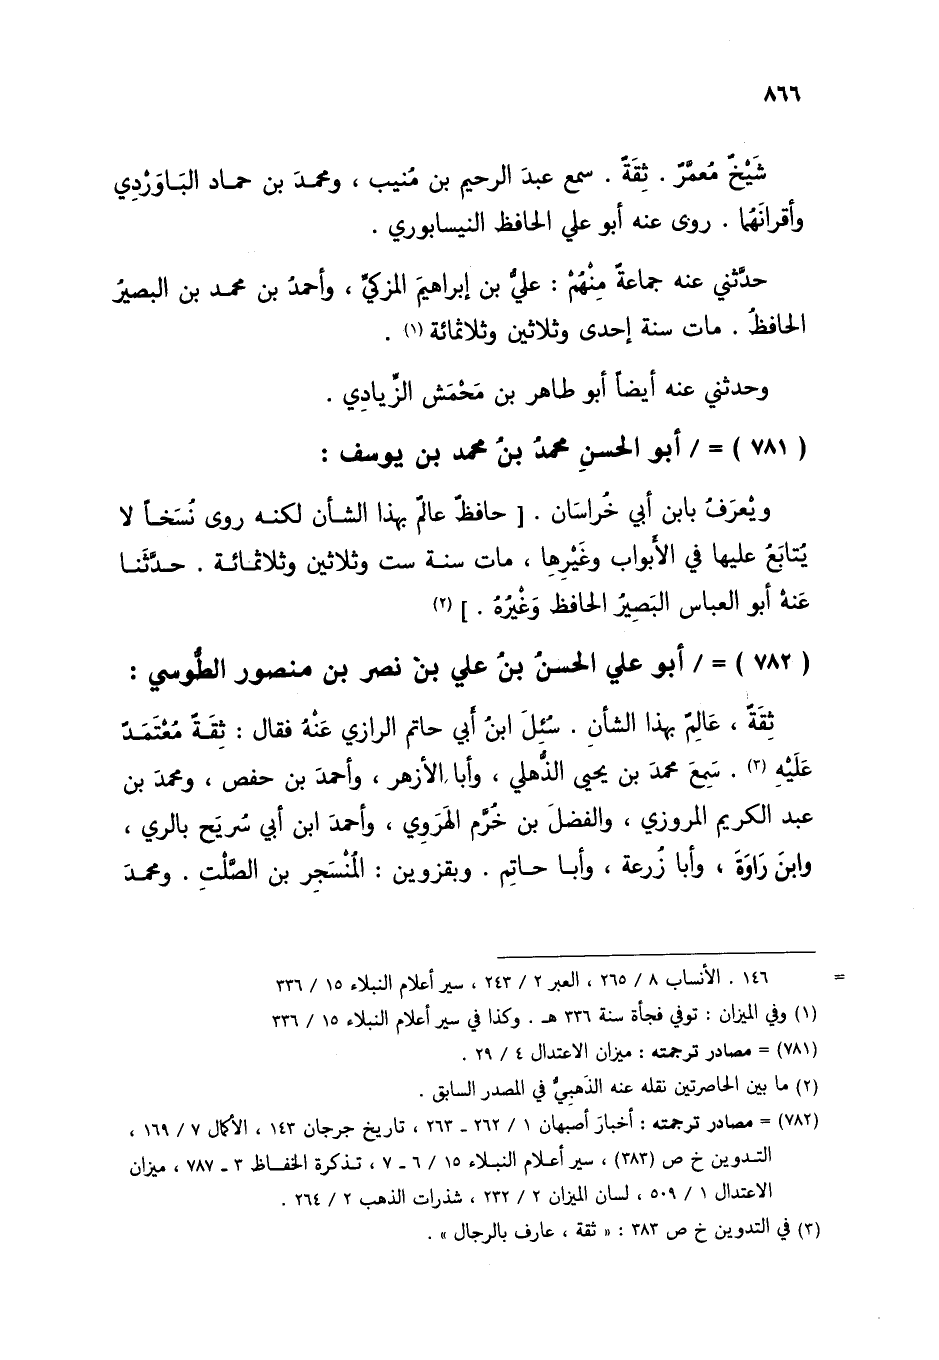 ٨٦٦
شَيْخٌ مُعمَّرٌ . ثِقَةٌ . سمع عبدَ الرحيم بن مُنيب ، ومحمدَ بن حماد البَـاوَرْدِي
وأقرانَهُما . روى عنه أبو علي الحافظ النيسابوري .
حدَّثني عنه جماعةٌ مِنْهُمْ : عليُّ بن إبراهيمَ المزكيِّ ، وأحمدُ بن محمـد بن البصيرُ
الحافظُ . مات سنة إحدى وثلاثين وثلاثمائة (١) .
وحدثني عنه أيضاً أبو طاهر بن مَحْمَش الزِّيادِي .
( ٧٨١ ) = / أبو الحسنِ محمدُ بنُ محمد بن يوسف :
ويْعرَفُ بابن أبي خُراسَان . [ حافظٌ عالمٌ بهذا الشـأن لكنـه روى نُسَخـاً لا
يُتابَعُ عليها في الأَبواب وغَيْرِها ، مات سنـة ست وثلاثين وثلاثمـائـة . حـدَّثَنـا
عَنهُ أبو العباس البَصِيرُ الحافظ وَغْيُرُهُ . ] (٢)
( ٧٨٢ ) = / أبو علي الحسنُ بنُ علي بنْ نصر بن منصور الطُّوسي :
ثِقَةٌ ، عَالِمٌ بهذا الشأنِ . سُئِلَ ابنُ أَبي حاتم الرازي عَنْهُ فقال : ثِقَـةٌ مُعْتَمَـدٌ
عَلَيْهِ (٣) . سَمِعَ محمدَ بن يحيى الذُّهلي ، وأبا الأزهر ، وأحمدَ بن حفص ، ومحمدَ بن
عبد الكريم المروزي ، والفضلَ بن خُرَّم الهَرَوِي ، وأحمدَ ابن أبي سُريَح بالري ،
وابنَ رَاوَةَ ، وأبا زُرعة ، وأبـا حـاتِم . وبقزوين : المُنْسَجِر بن الصَّلْتِ . ومحمـدَ
= ١٤٦ . الأنساب ٨ / ٢٦٥ ، العبر ٢ / ٢٤٣ ، سير أعلام النبلاء ١٥ / ٣٣٦
(١) وفي الميزان : توفي فجأة سنة ٣٣٦ هـ . وكذا في سير أعلام النبلاء ١٥ / ٣٣٦
(٧٨١) = مصادر ترجمته : ميزان الاعتدال ٤ / ٢٩ .
(٢) ما بين الحاصرتين نقله عنه الذهبيُّ في المصدر السابق .
(٧٨٢) = مصادر ترجمته : أخبار أصبهان ١ / ٢٦٢ ـ ٢٦٣ ، تاريخ جرجان ١٤٣ ، الأكمال ٧ / ١٦٩ ،
التـدوين خ ص (٣٨٣) ، سير أعـلام النبـلاء ١٥ / ٦ ـ ٧ ، تـذكرة الحفـاظ ٣ ـ ٧٨٧ ، ميزان
الاعتدال ١ / ٥٠٩ ، لسان الميزان ٢ / ٢٣٢ ، شذرات الذهب ٢ / ٢٦٤ .
(٣) في التدوين خ ص ٣٨٣ : « ثقة ، عارف بالرجال » .